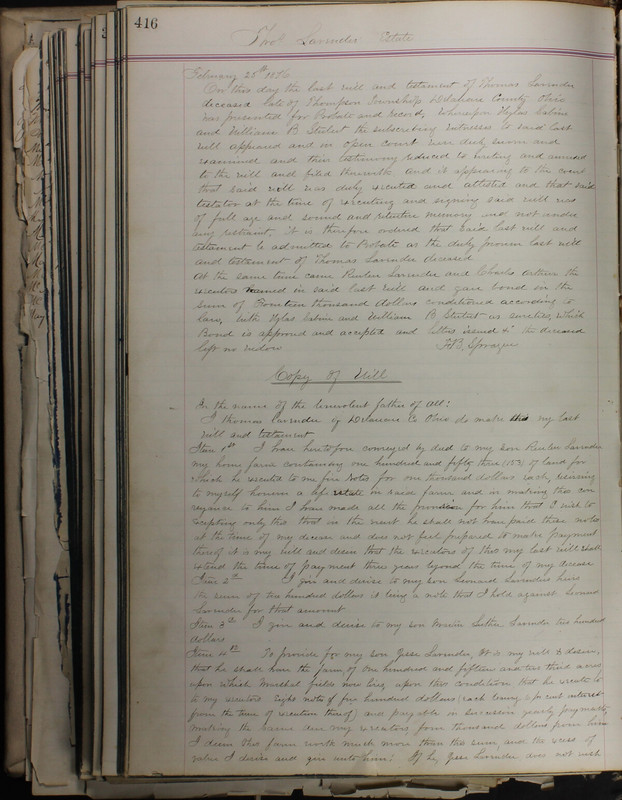 416
Thos Lavender Estate
February 25th 1876
On this day the last will and testament of Thomas Lavender
deceased late of Thompson Township Delaware County Ohio
was presented for Probate and record, Whereupon Hylas Sabine
and William B Stutut the subscribing witnesses to said last
will appeared and in open court were duly sworn and
examined and their testimony reduced to writing and annexed
to the will and filed therewith and it appearing to the court
that said will was duly executed and attested and that said
testator at the time of executing and signing said will was
of full age and sound and retentive memory and not under
any restraint, it is therefore ordered that said last will and
testament be admitted to Probate as the duly proven last will
and testament of Thomas Lavender deceased
At the same time came Reuben Lavender and Charles Arthur the
executors named in said last will and gave bond in the
sum of Fourteen thousand dollars conditioned according to
law, with Hylas Sabine and William B as sureties, which
Bond is approved and accepted and letters issued & the deceased
left no widow
Sprague
Copy of Will
In the name of the benevolent father of all:
I Thomas Lavender of Delaware Co Ohio do make this my last
will and testament
Item 1st I have heretofore conveyed by deed to my son Reuben Lavender
my home farm containing one hundred and fifty three (153) of land for
which he executed to me five notes for one thousand dollars each, reserving
to myself however a life estate in said farm and in making this con
veyance to him I have made all the provision for him that I wish to
excepting only this that in the event he shall not have paid these notes
at the time of my decease and does not feel prepared to make payment
thereof it is my will and desire that the executors of this my last will shall
extend the time of payment three years beyond the time of my decease
Item 2nd I give and devise to my son Leonard Lavenders heirs
the sum of two hundred dollars it being a note that I hold against Leonard
Lavender for that amount
Item 3rd I give and devise to my son Luther Lavender two hundred
dollars
Item 4th To provide for my son Jesse Lavender, it is my will & desire,
that he shall have the farm, of One hundred and fifteen and two third acres
upon which Marshal fields now lives, upon this condition that he execute to
to my executors Eight notes of five hundred dollars (each bearing 6 pr cent interest
from the time of execution thereof) and payable in succession yearly payments,
making the same due my executors four thousand dollars from him
I deem this farm worth much more than this sum, and the excess of
value I devise and give unto him: If he Jesse Lavender does not wish